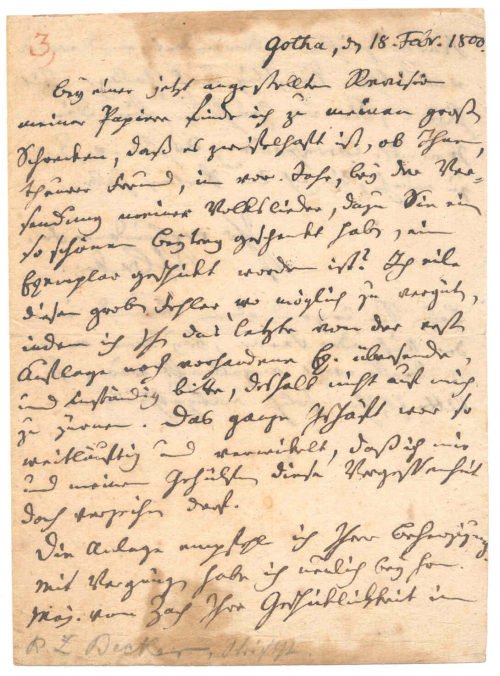 3
Gotha, d 18. Fbr. 1800.
bey einer jetzt angestellten Revision
meiner Papiere finde ich zu meinem groß
Schrecken, daß es zweifelhaft ist, ob Ihnen,
theurer Freund, im vor. Jahr, bey der Ver-
sendung meiner Volkslieder, dazu Sie ein
so schönen Beytrag geschenkt haben, ein
Exemplar geschickt worden ist? Ich eile
diesen groben Fehler wo möglich zu vergüten,
indem ich Ihn das letzte von der erst
Auflage noch vorhandene Ex. übersende,
und inständig bitte, deshalb nicht auf mich
zu zürnen. Das ganze Geschäft war so
weitläuftig und verwickelt, daß ich mir
und meinen Gehülfen diese Vergessenheit
doch verzeihen darf.
Die Anlage empfehle ich Ihrer Beherzigung.
Mit Vergnügen habe ich neulich bey Hrn.
Maj. von Zach Ihre Geschicklichkeit im
R Z Becker,